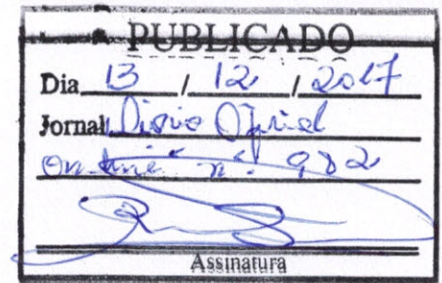 PUBLICADO
Dia 13 / 12 / 2017
Jornal Diário Oficial
On-line nº 982
Assinatura